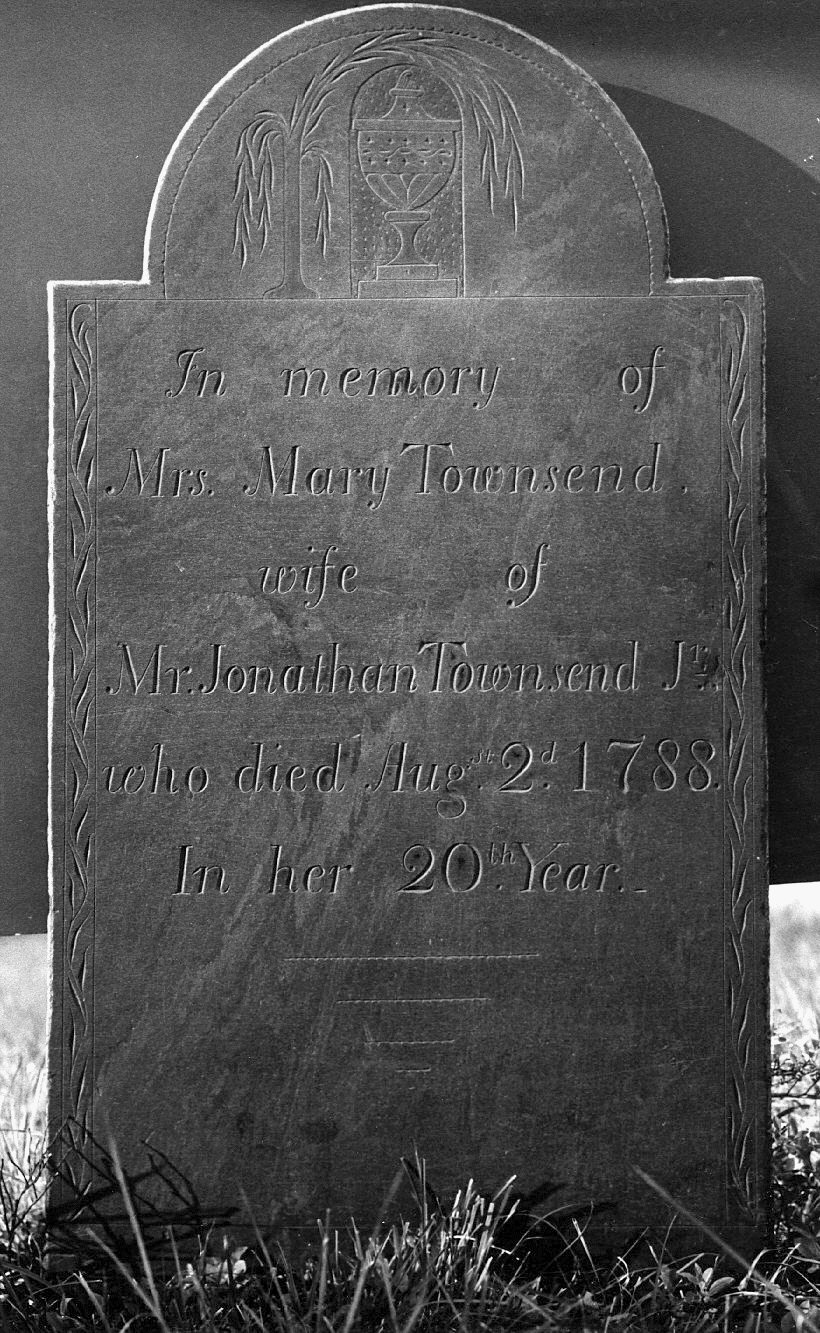 In memory of
Mrs. Mary Townsend.
wife of
Mr. Jonathan Townsend Jr.
who died Augst. 2d. 1788.
In her 20th. Year.